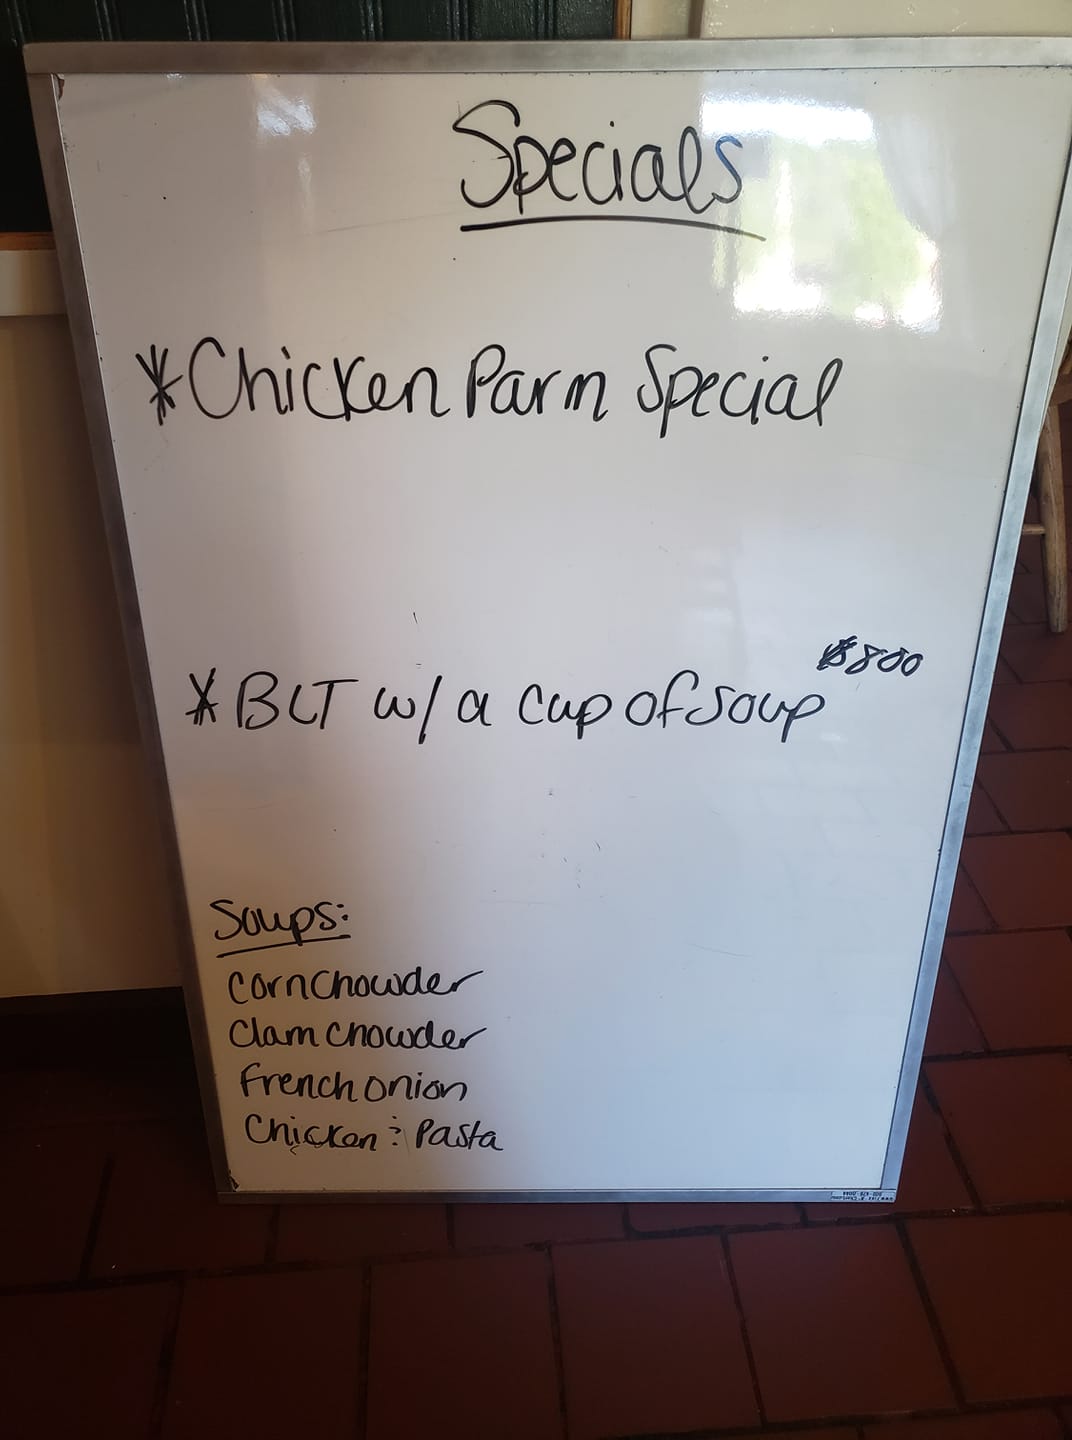 Specials
*Chicken Parm Special
*BLT w/ a cup of soup $800
Soups:
Corn Chowder
Clam Chowder
French onion
Chicken & Pasta